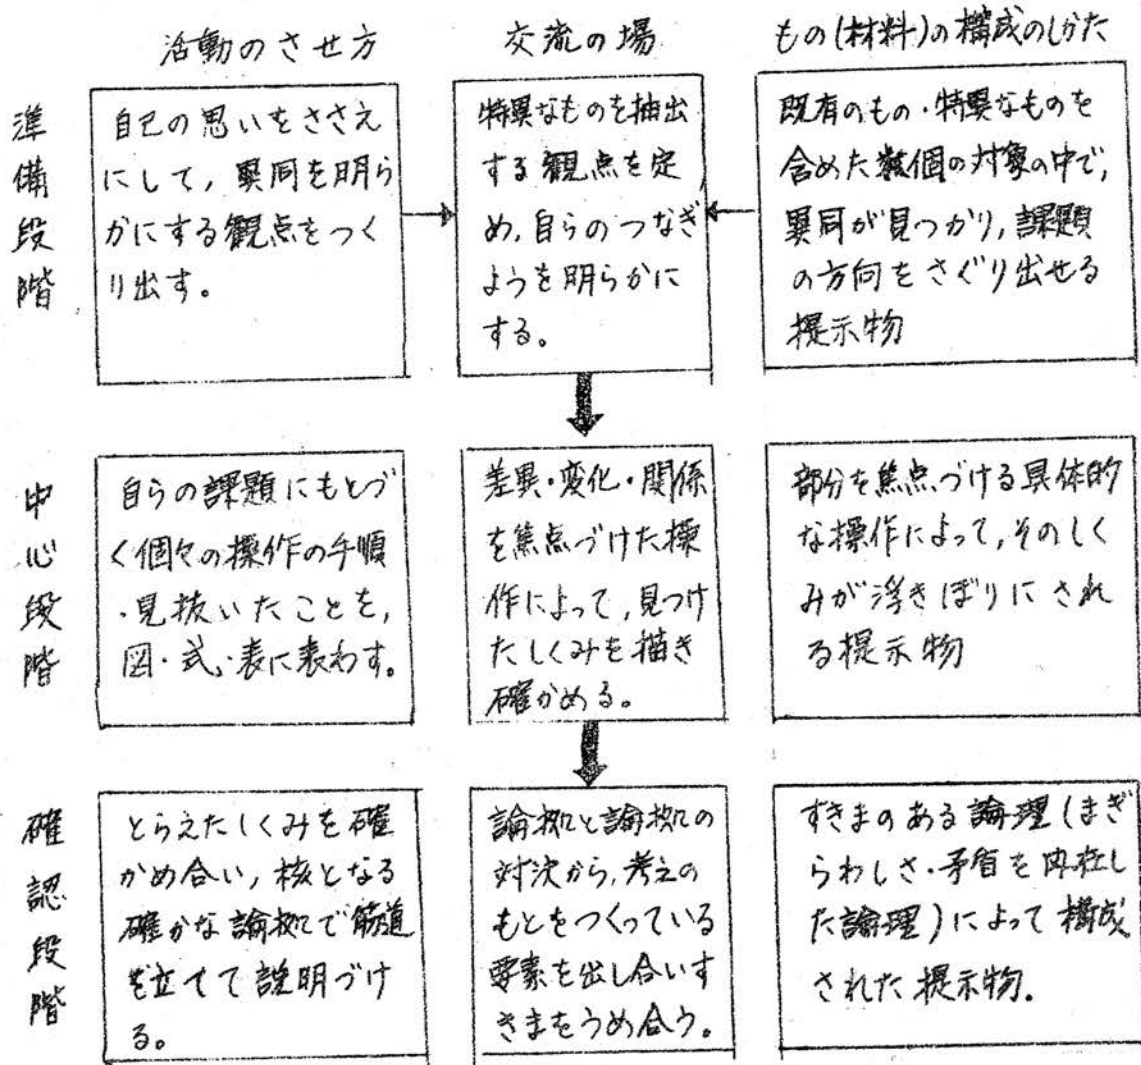 活動のさせ方
交流の場
もの(材料)の構成のしかた
準備段階
自己の思いをささえ
にして，異同を明ら
かにする観点をつく
り出す。
特異なものを抽出
する観点を定
め，自らのつなぎ
ようを明らかに
する。
既有のもの・特異なものを
含めた数個の対象の中で，
異同が見つかり，課題
の方向をさぐり出せる
提示物
中心段階
自らの課題にもとづ
く個々の操作の手順
・見抜いたことを，
図・式・表に表わす。
差異・変化・関係
を焦点づけた操
作によって，見つけ
たしくみを描き
確かめる。
部分を焦点づける具体的
な操作によって，そのしく
みが浮きぼりにされ
る提示物
確認段階
とらえたしくみを確
かめ合い，核となる
確かな論拠で筋道
を立てて説明づけ
る。
論拠と論拠の
対決から，考えの
もとをつくっている
要素を出し合いす
きまをうめ合う。
すきまのある論理(まぎ
らわしさ・矛盾を内在し
た論理)によって構成
された提示物.